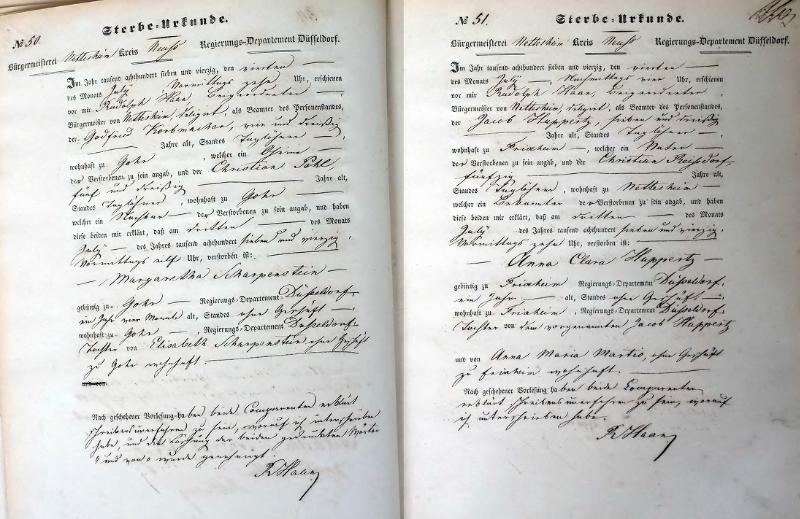 № 50.
Sterbe-Urkunde.
Bürgermeisterei Nettesheim Kreis Neuß Regierungs-Departement Düsseldorf.
Im Jahr tausend achthundert sieben und vierzig, den vierten
des Monats July Vormittags zehn Uhr, erschienen
vor mir Rudolph Haar, Beigeordneter,
Bürgermeister von Nettesheim, delegirt, als Beamter des Personenstandes,
der Godfried Korbmacher, vier und dreißig
Jahre alt, Standes Taglöhner,
wohnhaft zu Gohr, welcher ein Oheim
der Verstorbenen zu sein angab, und der Christian Pohl
fünf und dreißig Jahre alt,
Standes Taglöhner, wohnhaft zu Gohr
welcher ein Nachbar der Verstorbenen zu sein angab, und haben
diese beiden mir erklärt, daß am dritten des Monats
July des Jahres tausend achthundert sieben und vierzig,
Vormittags elf Uhr, verstorben ist:
Margaretha Scharpenstein
gebürtig zu Gohr Regierungs-Departement Düsseldorf
ein Jahr vier Monate alt, Standes ohne Geschäft
wohnhaft zu Gohr, Regierungs-Departement Düsseldorf
Tochter von Elisabeth Scharpenstein ohne Geschäft
zu Gohr wohnhaft
Nach geschehener Vorlesung haben beide Comparenten erklärt
schreibensunerfahren zu sein, worauf ich unterschrieben
habe, und die Löschung der beiden gedruckten Wörter
und von wurde genehmigt.
R Haar
№ 51.
Sterbe-Urkunde.
Bürgermeisterei Nettesheim Kreis Neuß Regierungs-Departement Düsseldorf.
Im Jahr tausend achthundert sieben und vierzig, den vierten
des Monats July, Nachmittags vier Uhr, erschienen
vor mir Rudolph Haar, Beigeordneter,
Bürgermeister von Nettesheim, delegirt, als Beamter des Personenstandes,
der Jacob Huppertz, sieben und dreißig
Jahre alt, Standes Taglöhner,
wohnhaft zu Frixheim, welcher ein Vater
der Verstorbenen zu sein angab, und der Christian
fünfzig Jahre alt,
Standes Taglöhner, wohnhaft zu Nettesheim
welcher ein Bekannter der Verstorbenen zu sein angab, und haben
diese beiden mir erklärt, daß am dritten des Monats
July des Jahres tausend achthundert sieben und vierzig,
Vormittags zehn Uhr, verstorben ist:
Anna Clara Huppertz
gebürtig zu Frixheim Regierungs-Departement Düsseldorf,
ein Jahr alt, Standes ohne Geschäft
wohnhaft zu Frixheim, Regierungs-Departement Düsseldorf
Tochter von dem vorgenannten Jacob Huppertz
und von Anna Maria, ohne Geschäft
zu Frixheim wohnhaft.
Nach geschehener Vorlesung haben beide Comparenten
erklärt schreibensunerfahren zu sein, worauf
ich unterschrieben habe.
R Haar